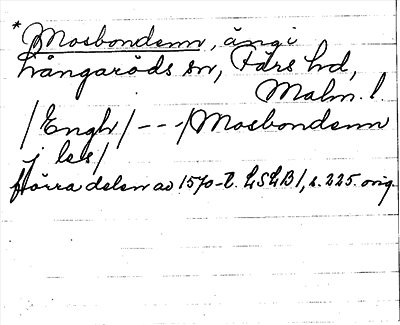 *Mosbondenn, äng i
Långaröds sn, Färs hd,
Malm. l.
/Engh/ --- /Mosbondenn
j les/
förra delen av 1570-t. LSLB 1, s. 225. orig.